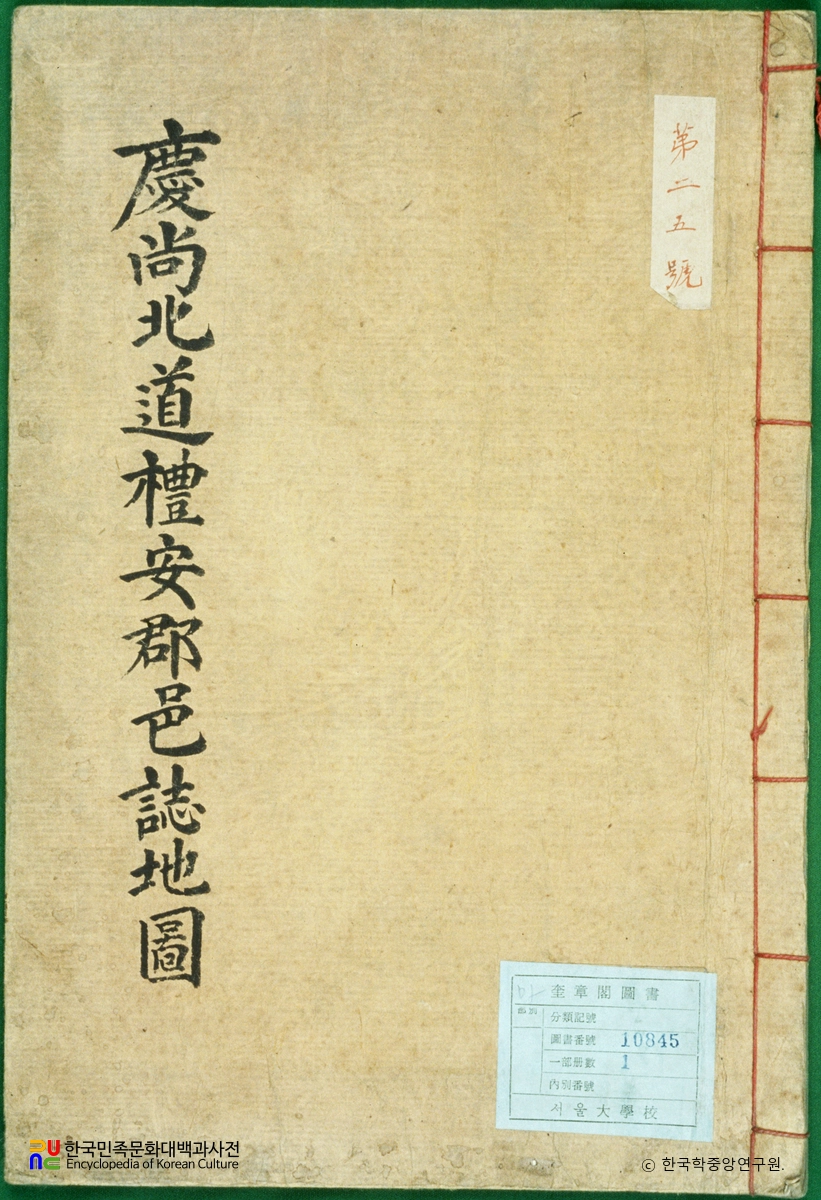 第二五號
慶尚北道禮安郡邑誌地圖
奎章閣圖書
部別
分類記號
圖書番號 10845
一部册數 1
內別番號
서울大學校
한국민족문화대백과사전
Encyclopedia of Korean Culture
© 한국학중앙연구원.